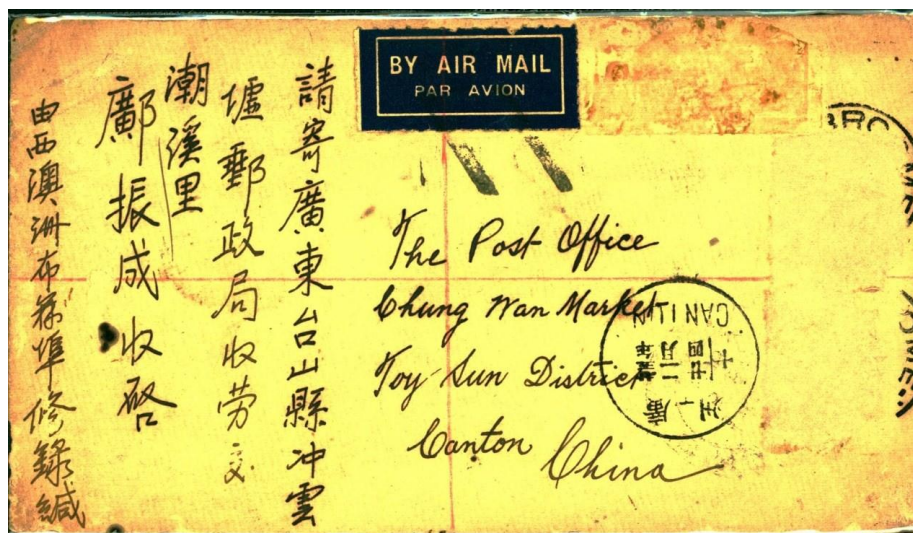 BY AIR MAIL
PAR AVION
請寄廣東台山縣冲雲
墟郵政局收劳交
潮溪里
鄺振成收啓
由西澳洲布 埠修錄緘
The Post Office
Chung Wan Market
Toy Sun District
Canton China
CANTON
廣州